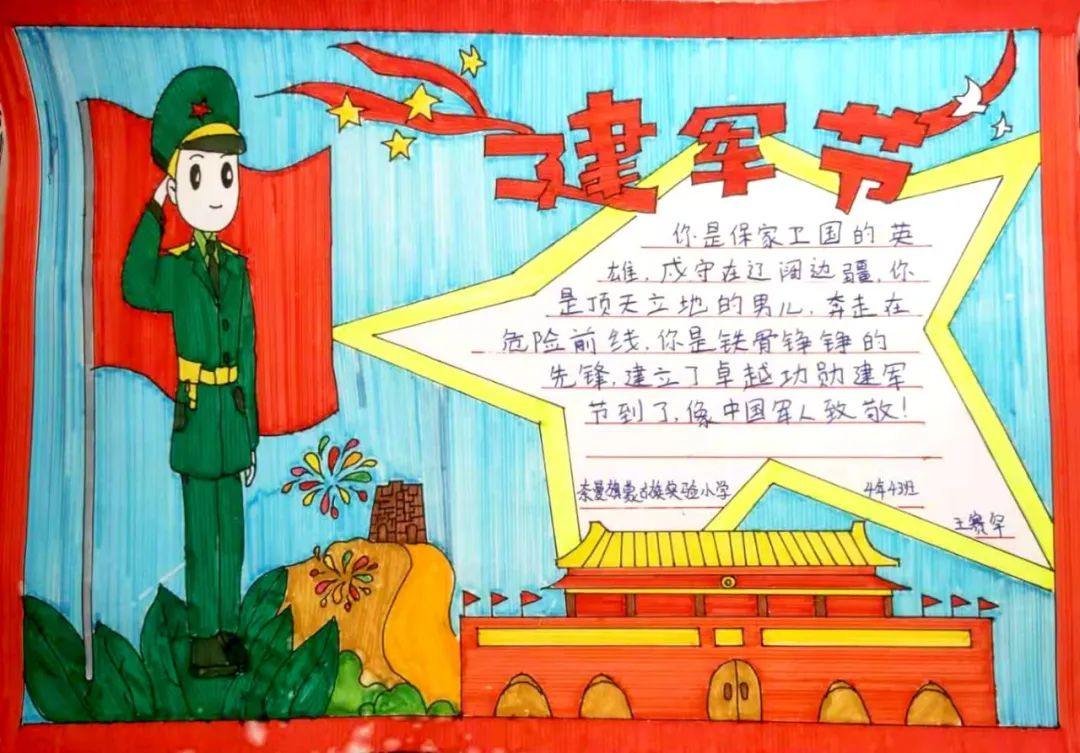 建军节
你是保家卫国的英
雄,戍守在辽阔边疆,你
是顶天立地的男儿,奔走在
危险前线,你是铁骨铮铮的
先锋,建立了卓越功勋建军
节到了,像中国军人致敬!
奈曼旗蒙古族实验小学
4年43班
王赛罕